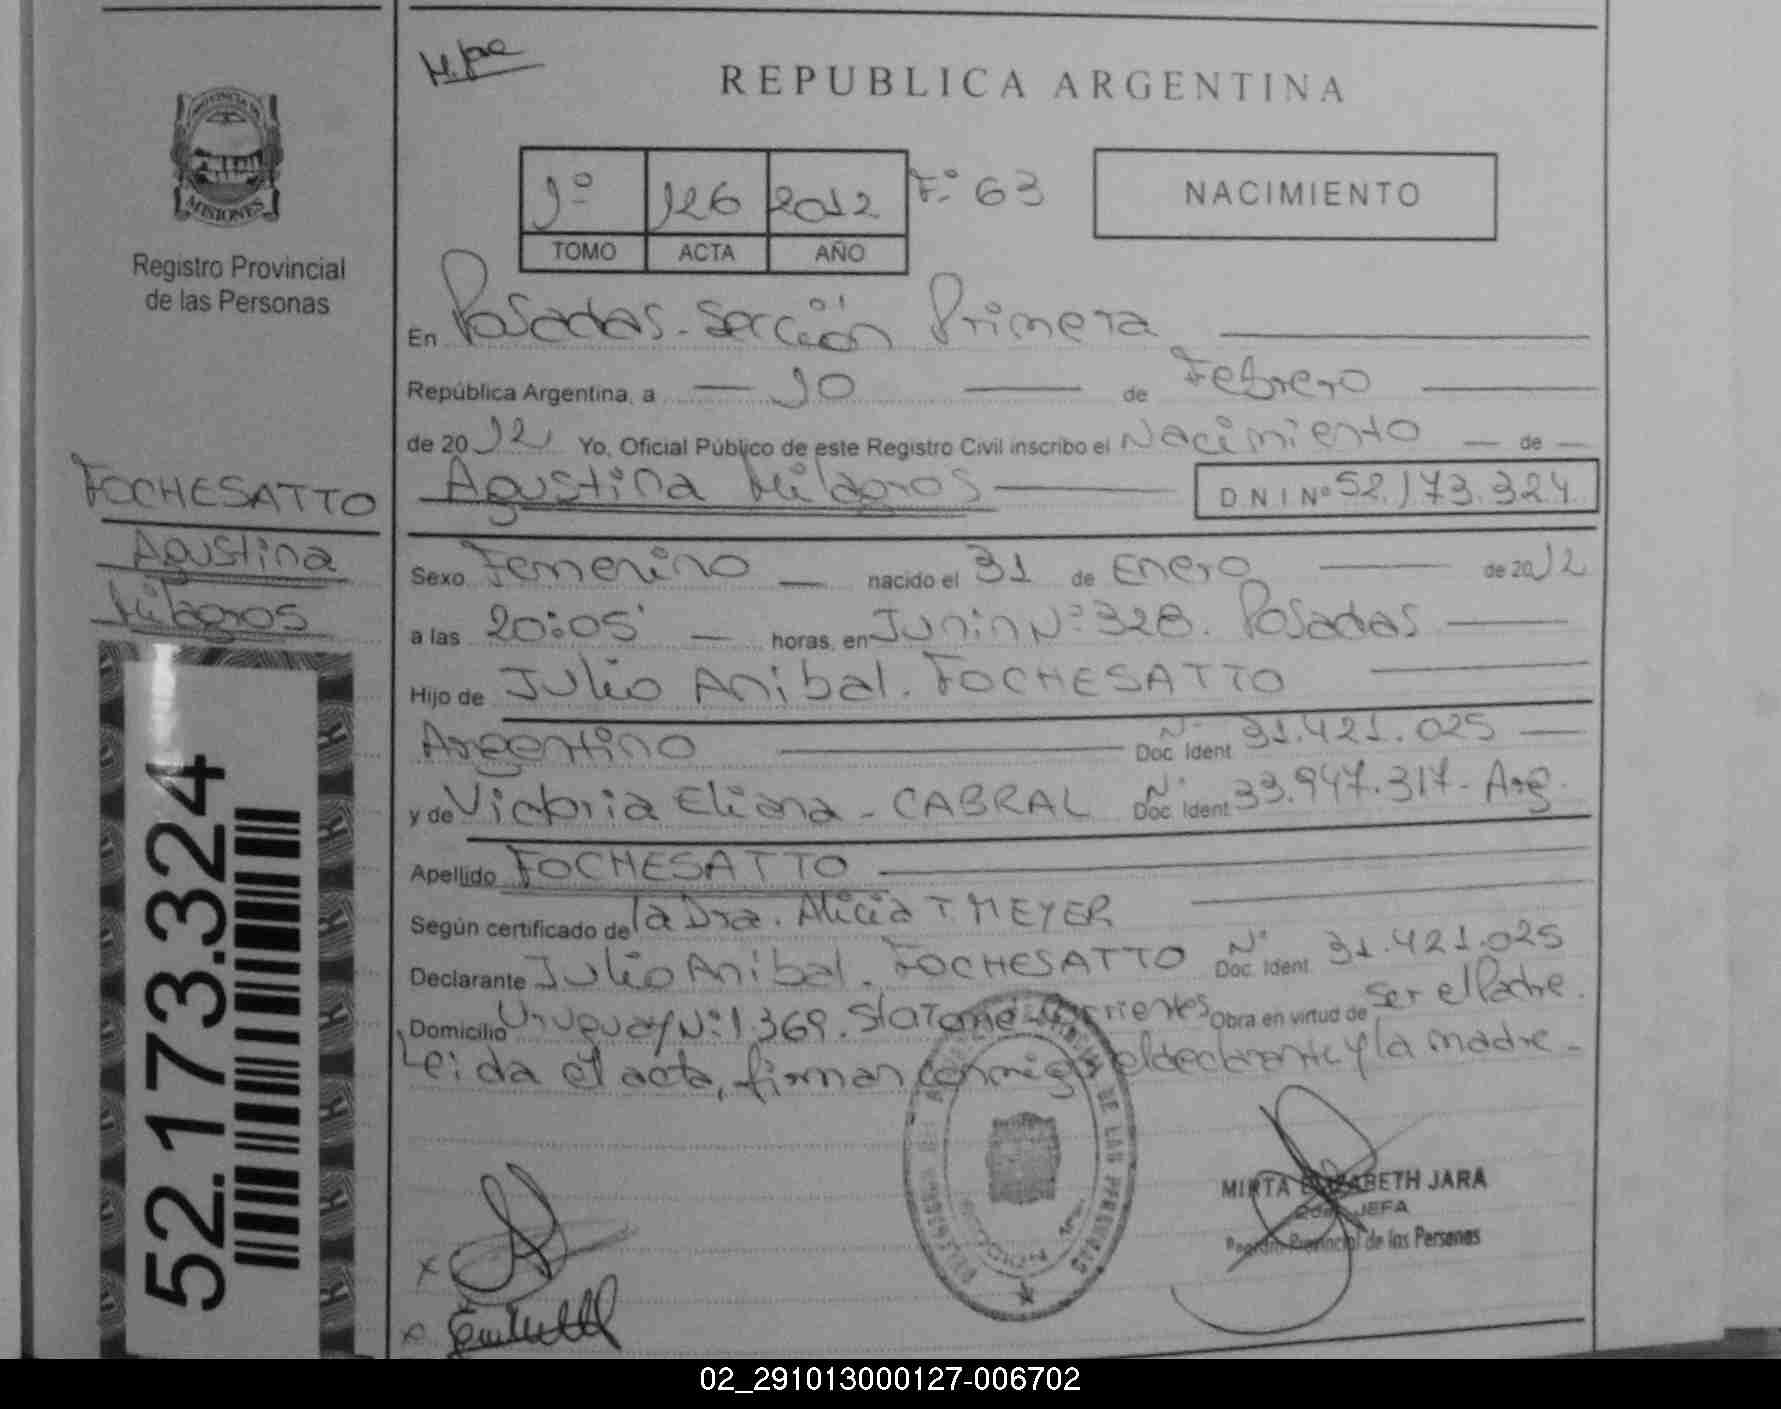 REPUBLICA ARGENTINA
PROVINCIA DE
MISIONES
Registro Provincial
de las Personas
1º 126 2012 Fº 63
TOMO ACTA AÑO
NACIMIENTO
En Posadas - Sección Primera
República Argentina, a 10 de Febrero
de 2012 Yo, Oficial Público de este Registro Civil inscribo el Nacimiento de
Agustina Milagros D N I Nº 52.173.324
FOCHESATTO
Agustina
Milagros
Sexo Femenino nacido el 31 de Enero de 2012
a las 20:05' horas, en Junin Nº 328. Posadas
Hijo de Julio Anibal. FOCHESATTO
Argentino Doc. Ident. Nº 31.421.025
y de Victoria Eliana - CABRAL Doc. Ident. Nº 33.947.317 - Arg.
Apellido FOCHESATTO
Según certificado de la Dra. Alicia T. MEYER
Declarante Julio Anibal. FOCHESATTO Doc. Ident. Nº 31.421.025
Domicilio Uruguay Nº 1.369. Sto Tomé - Corrientes Obra en virtud de ser el Padre.
Leida el acta, firman conmigo el declarante y la madre -
52.173.324
DE LAS PERSONAS
MIRTA ELIZABETH JARA
JEFA
Registro Provincial de las Personas
02_291013000127-006702